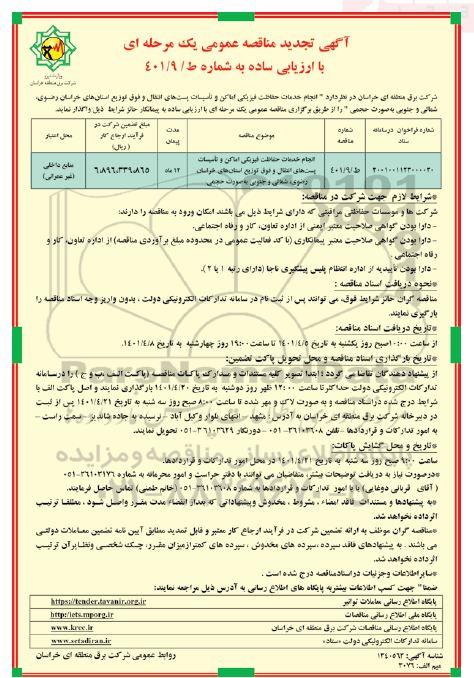 آگهی تجدید مناقصه عمومی یک مرحله ای
با ارزیابی ساده به شماره ط/ ۴۰۱/۹
شرکت برق منطقه ای خراسان
شرکت برق منطقه ای خراسان در نظر دارد " انجام خدمات حفاظت فیزیکی اماکن و تأسیسات پست‌های انتقال و فوق توزیع استان‌های خراسان رضوی،
شمالی و جنوبی به‌صورت حجمی " را از طریق برگزاری مناقصه عمومی یک مرحله ای با ارزیابی ساده به پیمانکار حائز شرایط ذیل واگذار نماید.
شماره فراخوان در سامانه ستاد
شماره مناقصه
موضوع مناقصه
مدت پیمان
مبلغ تضمین شرکت در فرآیند ارجاع کار (ریال)
محل اعتبار
ط/۴۰۱/۹
انجام خدمات حفاظت فیزیکی اماکن و تأسیسات
پست‌های انتقال و فوق توزیع استان‌های خراسان
رضوی، شمالی و جنوبی به‌صورت حجمی
۱۲ ماه
۶،۸۹۶،۳۳۹،۸۶۵
منابع داخلی
(غیر عمرانی)
*شرایط لازم جهت شرکت در مناقصه:
شرکت ها و موسسات حفاظتی مراقبتی که دارای شرایط ذیل می باشند امکان ورود به مناقصه را دارند:
- دارا بودن گواهی صلاحیت معتبر ایمنی از اداره تعاون، کار و رفاه اجتماعی.
- دارا بودن گواهی صلاحیت معتبر پیمانکاری (با کد فعالیت عمومی در محدوده مبلغ برآوردی مناقصه) از اداره تعاون، کار و
رفاه اجتماعی .
- دارا بودن تاییدیه از اداره انتظام پلیس پیشگیری ناجا (دارای رتبه ۱ یا ۲ ).
*نحوه دریافت اسناد مناقصه :
مناقصه گران حائز شرایط فوق، می توانند پس از ثبت نام در سامانه تدارکات الکترونیکی دولت ، بدون واریز وجه اسناد مناقصه را
بارگیری نمایند.
*تاریخ دریافت اسناد مناقصه:
از ساعت ۱۰:۰۰صبح روز یکشنبه به تاریخ ۱۴۰۱/۴/۵ تا ساعت ۱۹:۰۰ روز چهارشنبه به تاریخ ۱۴۰۱/۴/۸.
*تاریخ بارگذاری اسناد مناقصه و محل تحویل پاکت تضمین:
از پیشنهاد دهندگان تقاضا می گردد ؛ ابتدا تصویر کلیه مستندات و مدارک پاکات مناقصه (پاکت الف ،ب و ج ) را درسامانه
تدارکات الکترونیکی دولت حداکثر تا ساعت ۱۲:۰۰ ظهر روز دوشنبه به تاریخ ۱۴۰۱/۴/۲۰ بارگذاری نمایند و اصل پاکت الف با
شرایط درج شده دراسناد مناقصه و به صورت لاک و مهر شده تا ساعت ۸:۰۰ صبح روز سه شنبه به تاریخ ۱۴۰۱/۴/۲۱ پس از ثبت
در دبیرخانه شرکت برق منطقه ای خراسان به آدرس: مشهد - انتهای بلوار وکیل آباد - نرسیده به جاده شاندیز - سمت راست -
به امور تدارکات و قراردادها -تلفن ۳۶۱۰۳۶۰۸-۰۵۱ -دورنگار ۳۶۱۰۳۶۲۹-۰۵۱ تحویل نمایند.
*تاریخ و محل گشایش پاکات:
ساعت ۹:۰۰ صبح روز سه شنبه به تاریخ ۱۴۰۱/۴/۲۱ در محل امور تدارکات و قراردادها.
*درصورت نیاز به دریافت توضیحات بیشتر، متقاضیان می توانند با دفتر حراست و امور محرمانه به شماره ۳۶۱۰۳۱۷۶-۰۵۱
( آقای قربانی دوغایی) و با امور تدارکات و قراردادها به شماره ۳۶۱۰۳۶۰۸-۰۵۱ (خانم حتمی) تماس حاصل فرمایند.
* به پیشنهادها و مستندات فاقد امضاء ، مشروط ، مخدوش و پیشنهاداتی که بعد از انقضاء مدت مقرر واصل شود ، مطلقا ترتیب
اثرداده نخواهد شد.
*مناقصه گران موظف به ارائه تضمین شرکت در فرآیند ارجاع کار معتبر و قابل تمدید مطابق آیین نامه تضمین معاملات دولتی
می باشند . به پیشنهادهای فاقد سپرده ،سپرده های مخدوش ، سپرده های کمتر از میزان مقرر، چک شخصی و نظایر آن ترتیب
اثرداده نخواهد شد.
*سایر اطلاعات و جزئیات در اسناد مناقصه درج شده است .
ضمناً" جهت کسب اطلاعات بیشتر به پایگاه های اطلاع رسانی به آدرس ذیل مراجعه نمایند:
پایگاه اطلاع رسانی معاملات توانیر https://tender.tavanir.org.ir
پایگاه ملی اطلاع رسانی مناقصات http://iets.mporg.ir
پایگاه اطلاع رسانی مناقصات شرکت برق منطقه ای خراسان www.krec.ir
سامانه تدارکات الکترونیکی دولت «ستاد» www.setadiran.ir
شناسه آگهی: ۱۳۴۰۵۶۳
میم الف: ۳۰۷۶
روابط عمومی شرکت برق منطقه ای خراسان